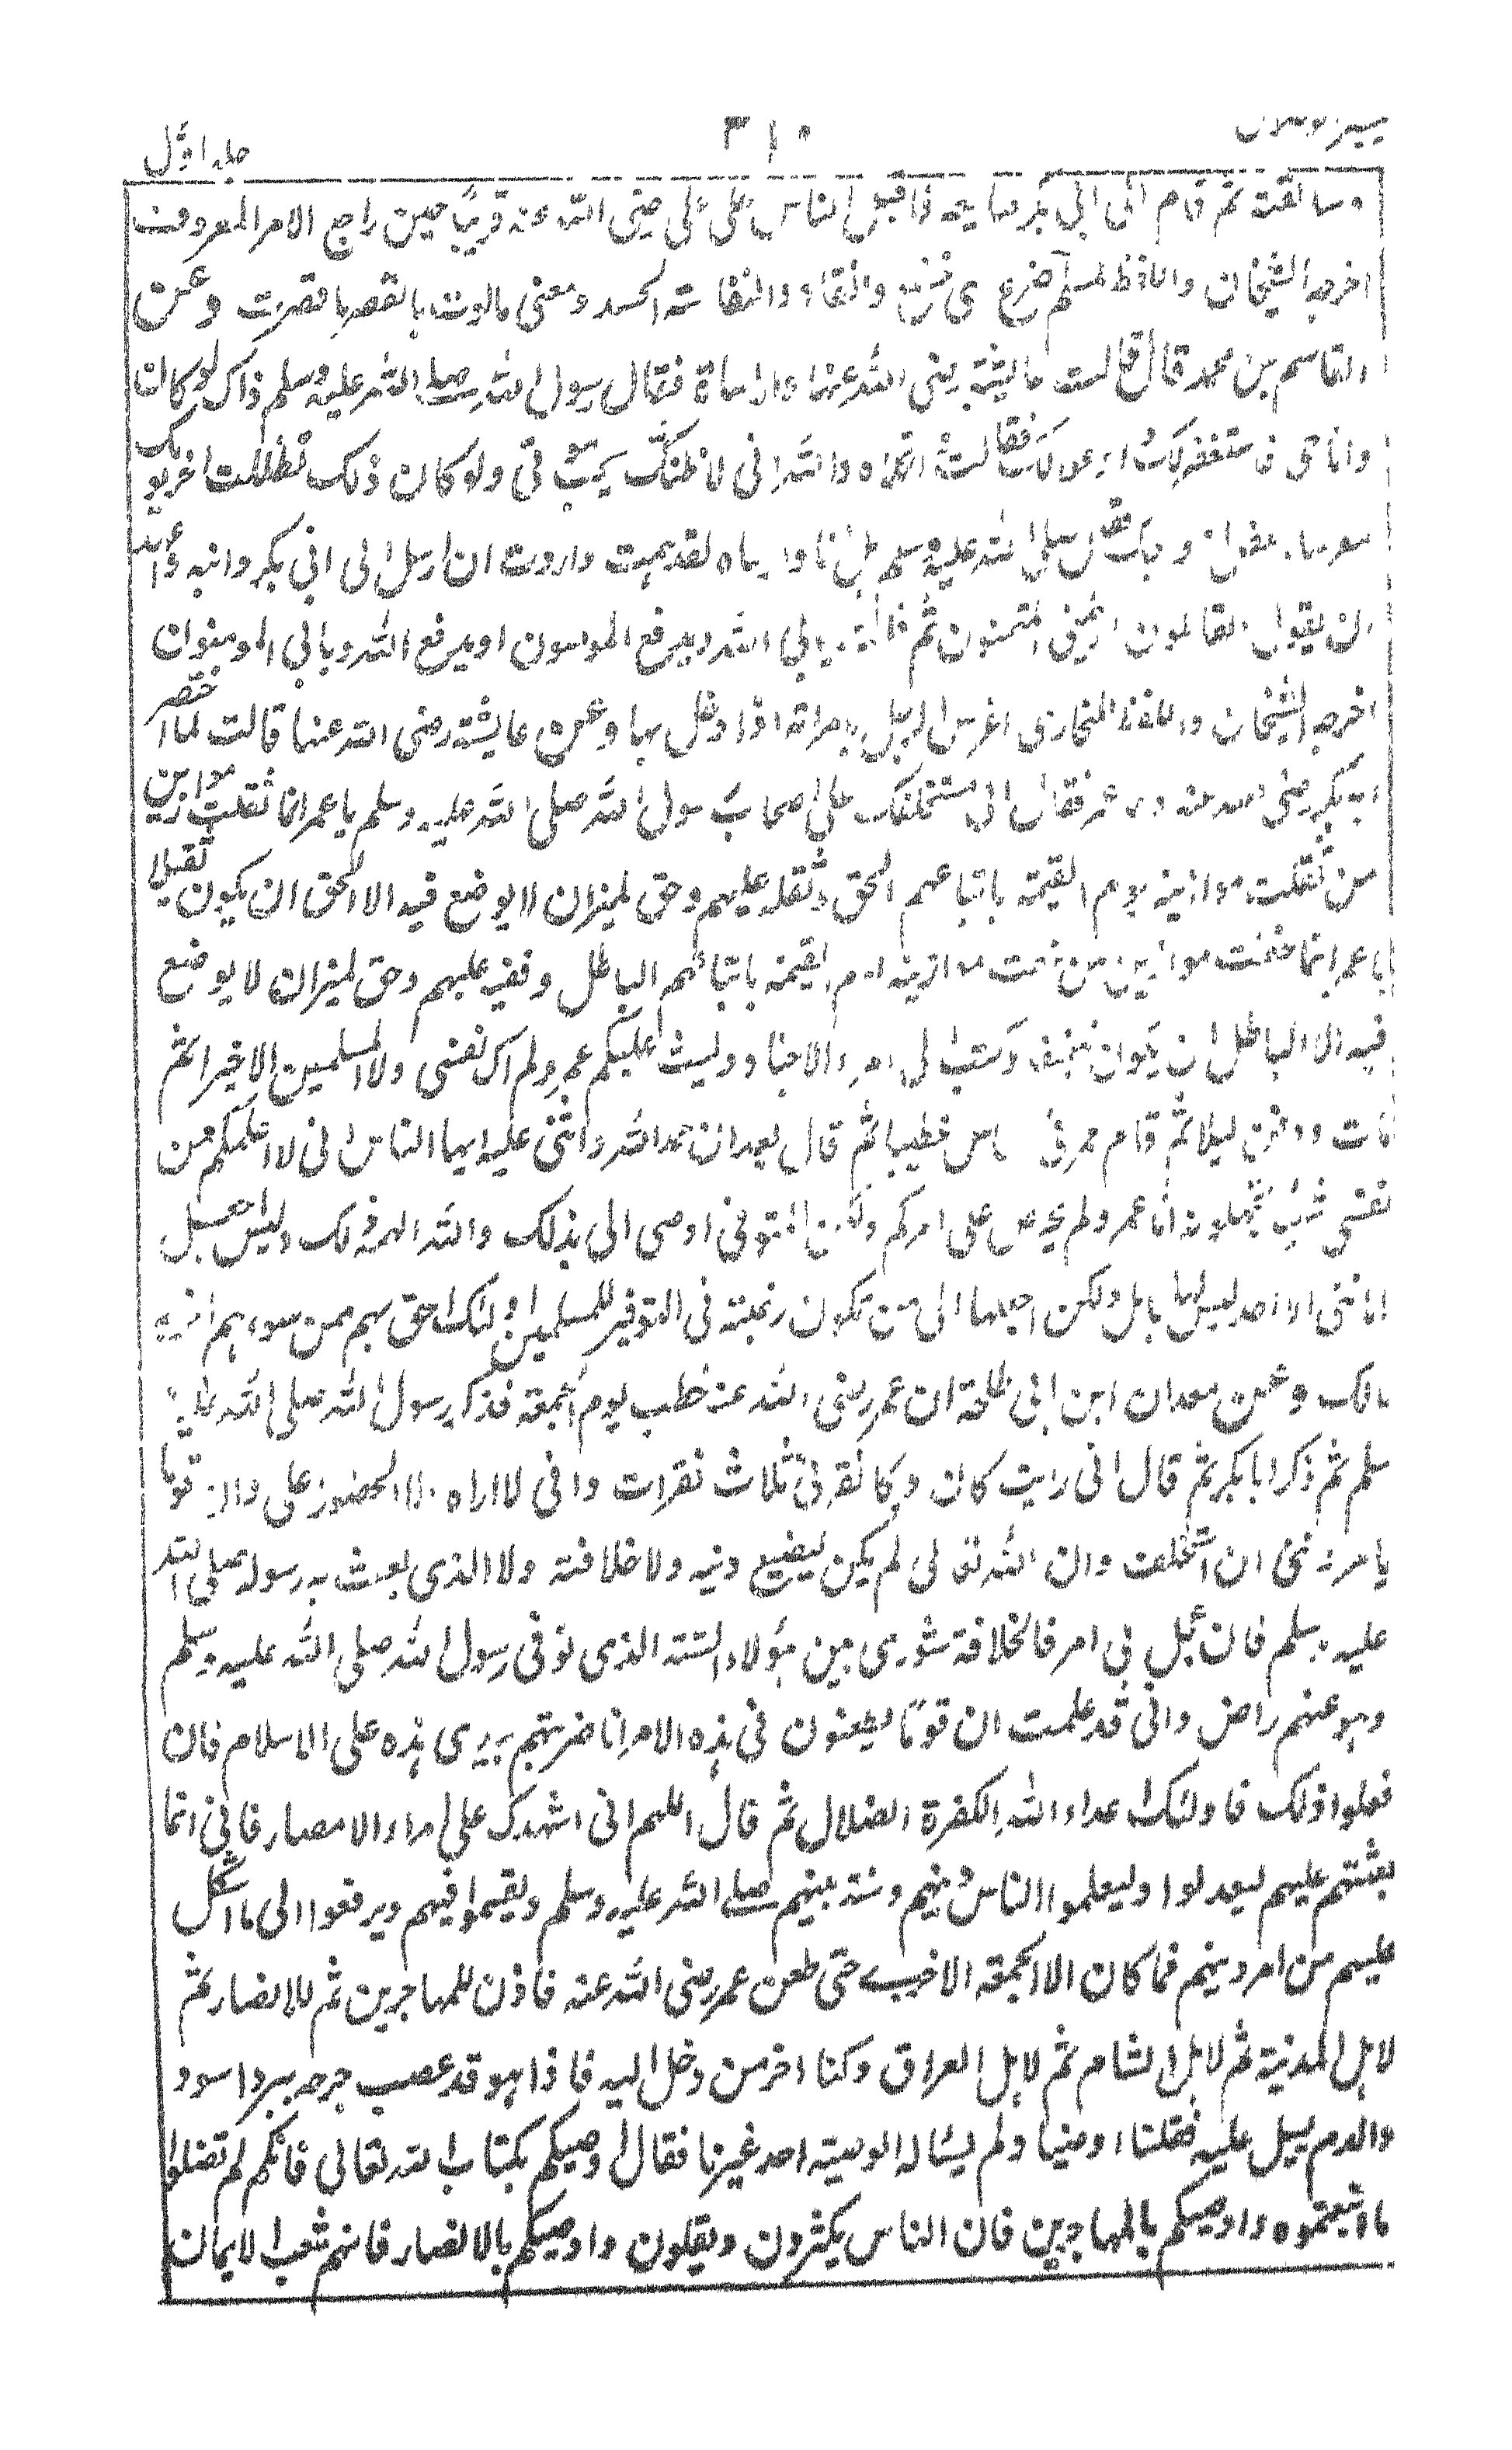 جلد اوّل
٣١٠
وسابقته ثم قام الى ابى بكر فبايعه فاقبل الناس على على رضى الله عنه قريبًا حين راجع الامر المعروف
اخرجه الشيخان واللفظ لمسلم ضرع والنفاسة الحسد ومعنى مالوت بالقصر ما قصرت وعن
القاسم بن محمد قال قالت عايشة رضى الله عنها واراساه فقال رسول الله صلى الله عليه وسلم ذاك لو كان
وانا حى فاستغفر لك وادعو لك فقالت واثكلاه والله انى لاظنك تحب موتى ولو كان ذلك لظللت آخر يومك
معرسا ببعض ازواجك فقال صلى الله عليه وسلم بل انا واراساه لقد هممت واردت ان ارسل الى ابى بكر وابنه واعهد
ان يقول القائلون او يتمنى المتمنون ثم قلت يابى الله ويدفع المومنون او يدفع الله ويابى المومنون
اخرجه الشيخان واللفظ للبخارى اعرس الرجل بامراته اذا دخل بها وعن عايشة رضى الله عنها قالت لما احتضر
ابو بكر رضى الله عنه دعا عمر فقال انى مستخلفك على اصحاب رسول الله صلى الله عليه وسلم يا عمر انما ثقلت موازين
من ثقلت موازينه يوم القيمة باتباعهم الحق وثقله عليهم وحق لميزان لا يوضع فيه الا الحق ان يكون ثقيلا
يا عمر انما خفت موازين من خفت موازينه يوم القيمة باتباعهم الباطل وخفته عليهم وحق لميزان لا يوضع
فيه الا الباطل ان يكون خفيفا وكتب الى امراء الاجناد وليت عليكم عمر ولم آل نفسى ولا المسلمين الا خيرا ثم
مات ودفن ليلا ثم قام عمر فى الناس خطيبا ثم قال بعد ان حمد الله واثنى عليه ايها الناس انى لا اعلمكم من
نفسى شيئا تجهلونه انا عمر ولم احرص على امركم ولكن المتوفى اوصى الى بذلك والله الهمه ذلك وليس اجعل
امانتى الى احد ليس لها باهل ولكن اجعلها الى من تكون رغبته فى التوقير للمسلمين اولئك احق بهم ممن سواهم اخرجه
مالك وعن معدان ابن ابى طلحة ان عمر رضى الله عنه خطب يوم الجمعة فذكر رسول الله صلى الله عليه
سلم ثم ذكر ابا بكر ثم قال انى رايت كان ديكا نقرنى ثلاث نقرات وانى لا اراه الا لحضور اجلى وان قوما
يامروننى ان استخلف وان الله تعالى لم يكن ليضيع دينه ولا خلافته ولا الذى بعث به رسوله صلى الله
عليه وسلم فان عجل بى امر فالخلافة شورى بين هؤلاء الستة الذى توفى رسول الله صلى الله عليه وسلم
وهو عنهم راض وانى قد علمت ان قومًا يطعنون فى هذه الامر انا ضربتهم بيدى هذه على الاسلام فان
فعلوا ذلك فاولئك اعداء الله الكفرة الضلال ثم قال اللهم انى اشهدك على امراء الامصار فانى انما
بعثتهم عليهم ليعدلوا وليعلموا الناس دينهم وسنة نبيهم صلى الله عليه وسلم ويقيموا فيهم ويرفعوا الى ما اشكل
عليهم من امر دينهم فما كان الا الجمعة الاخرى حتى طعن عمر رضى الله عنه فاذن للمهاجرين ثم للانصار ثم
لاهل المدينة ثم لاهل الشام ثم لاهل العراق وكنا اخر من دخل اليه فاذا هو قد عصب جرحه ببرد اسود
والدم يسيل عليه فقلنا اوصنا ولم يسئاله الوصية احد غيرنا فقال اوصيكم بكتاب الله تعالى فانكم لم تضلوا
ما اتبعتموه واوصيكم بالمهاجرين فان الناس يكثرون ويقلون واوصيكم بالانصار فانهم شعب الايمان